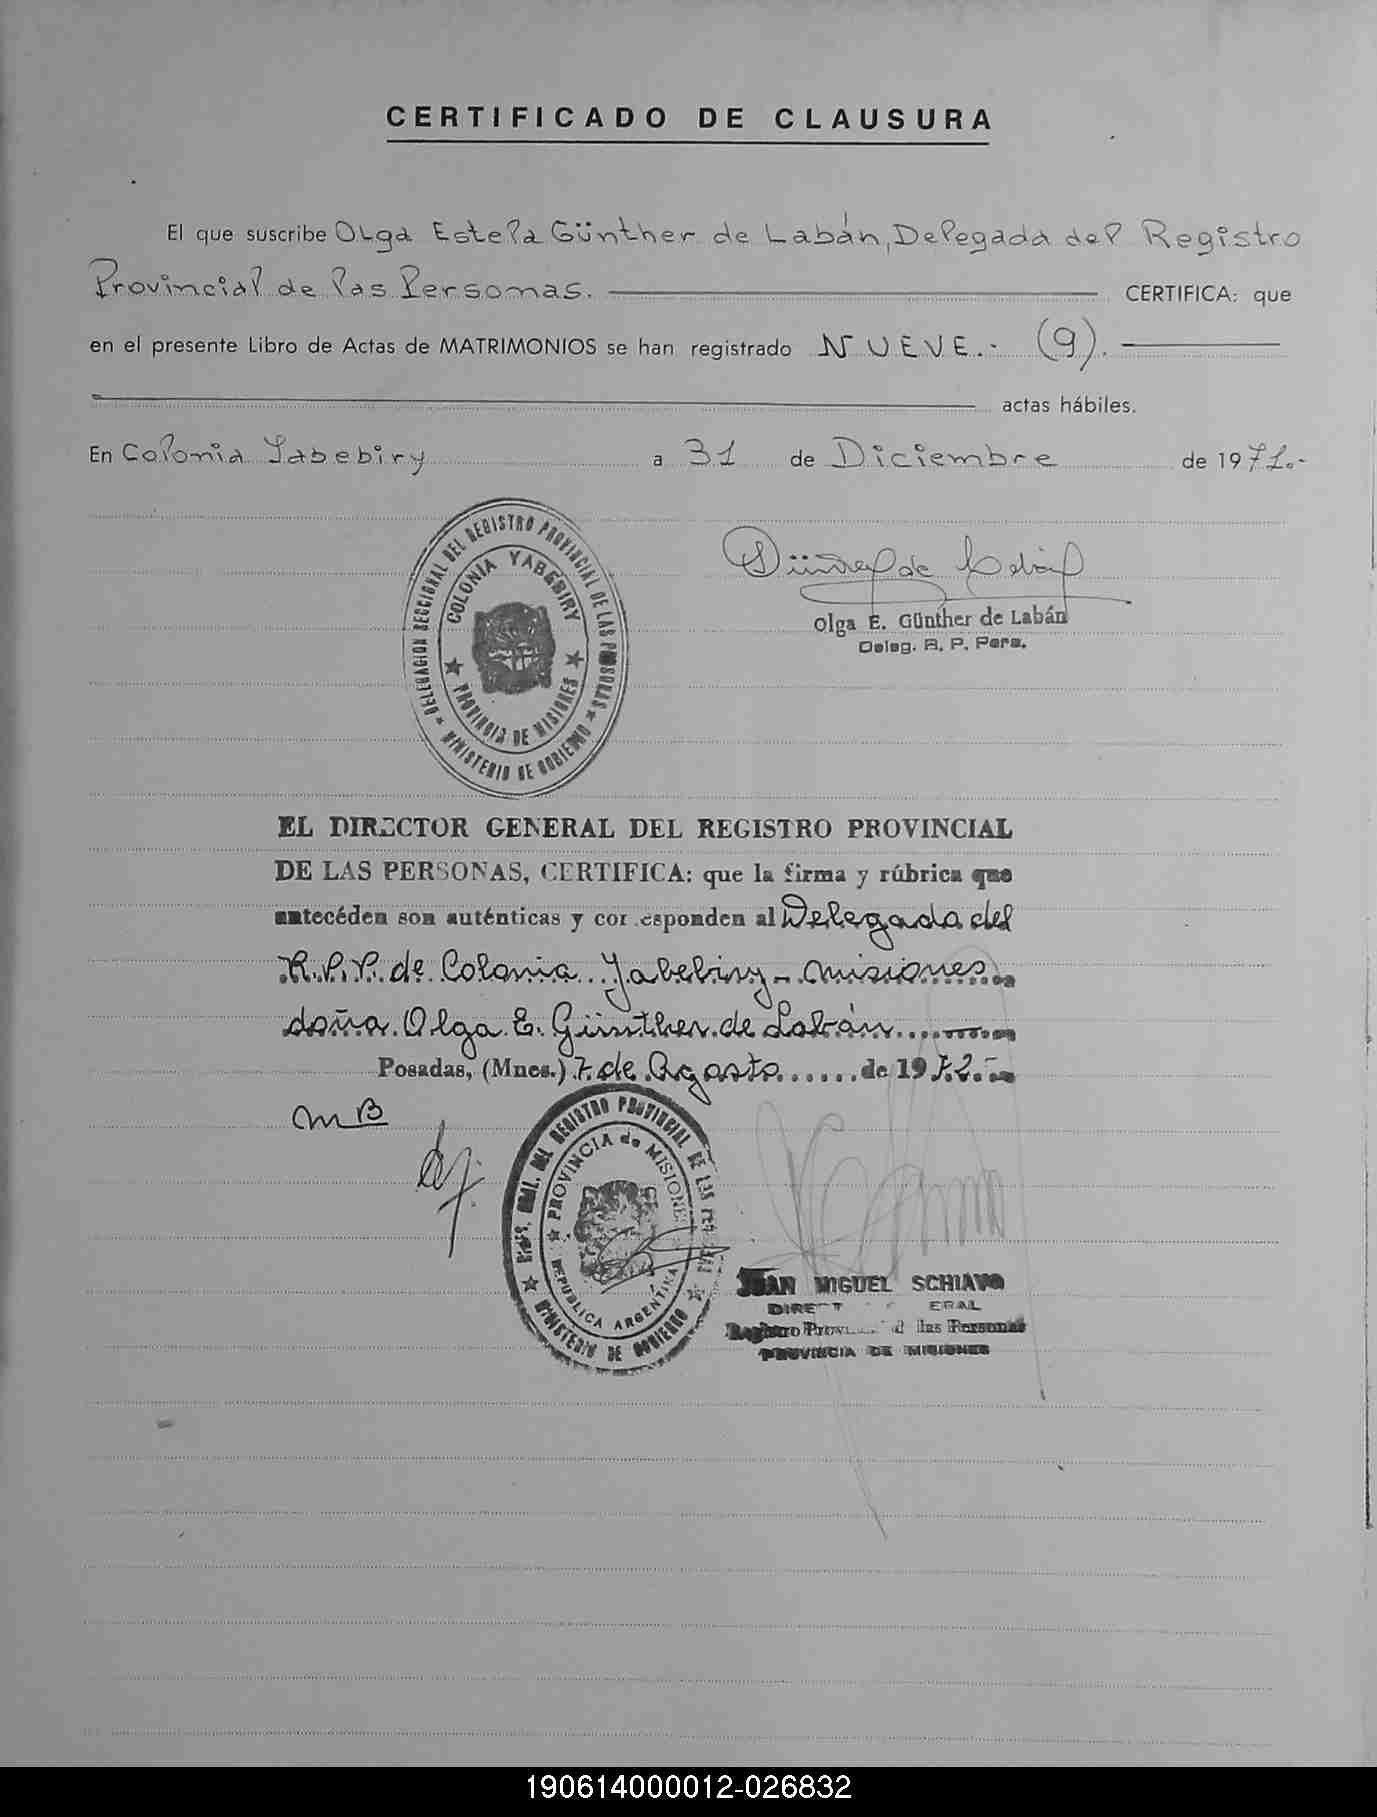 CERTIFICADO DE CLAUSURA
El que suscribe Olga Estela Günther de Labán, Delegada del Registro
Provincial de las Personas. CERTIFICA: que
en el presente Libro de Actas de MATRIMONIOS se han registrado NUEVE.- (9).
actas hábiles.
En Colonia Yabebiry a 31 de Diciembre de 1971.-
DELEGACION SECCIONAL DEL REGISTRO PROVINCIAL DE LAS PERSONAS
COLONIA YABEBIRY
PROVINCIA DE MISIONES
MINISTERIO DE GOBIERNO
Günther de Labán
Olga E. Günther de Labán
Deleg. R. P. Pers.
EL DIRECTOR GENERAL DEL REGISTRO PROVINCIAL
DE LAS PERSONAS, CERTIFICA: que la firma y rúbrica que
antecéden son auténticas y corresponden al Delegada del
R.P.P. de Colonia Yabebiry - Misiones
doña Olga E. Günther de Labán
Posadas, (Mnes.) 7 de Agosto de 1972.-
MB
DIREC. GRAL. DEL REGISTRO PROVINCIAL DE LAS PERSONAS
PROVINCIA de MISIONES
REPUBLICA ARGENTINA
MINISTERIO DE GOBIERNO
JUAN MIGUEL SCHIAVO
DIRECTOR GENERAL
Registro Provincial de las Personas
PROVINCIA DE MISIONES
190614000012-026832